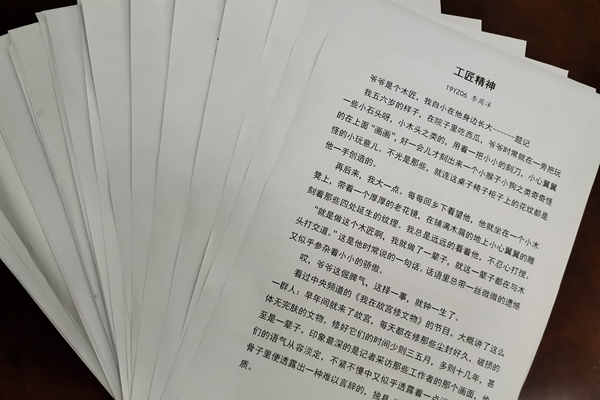 工匠精神
19YZ06 李周洋
爷爷是个木匠，我自小在他身边长大———题记
我五六岁的样子，在院子里吃西瓜，爷爷时常就在一旁把玩
一些小石头呀，小木头之类的，用着一把小的刻刀，小心翼翼
的在上面“画画”，好一会儿才刻出来一个小猴子小狗之类奇奇怪
怪的小玩意儿。不光是那些，就连这桌子椅子柜子上的花纹都是
他一手创造的。
再后来，我大一点。每每回乡下看望他，他就坐在一个小木
凳上，带着一个厚厚的老花镜，在铺满木屑的地上小心翼翼的雕
刻着那些四处延生的纹理。我总是远远的看着他，不忍心打搅。
“就是做这个木匠啊，我就做了一辈子，就这一辈子都在与木
头打交道。”这是他时常说的一句话，话语里总带一丝微微的遗憾
又似乎参杂着小小的骄傲。
哎，爷爷这倔脾气，这择一事，就钟一生了。
看过中央频道的《我在故宫修文物》的节目。大概讲了这么
一群人：早年间就来了故宫，每天都在修那些尘封好久，破损的
体无完肤的文物。修好它们的时间少则三五月，多则十几年，甚
至是一辈子。印象最深的是记者采访那些工作者的那个画面，他
们的语气从容淡定，不紧不慢中又似乎透露着一点
骨子里便透露出一种难以言辞的，独是
质。